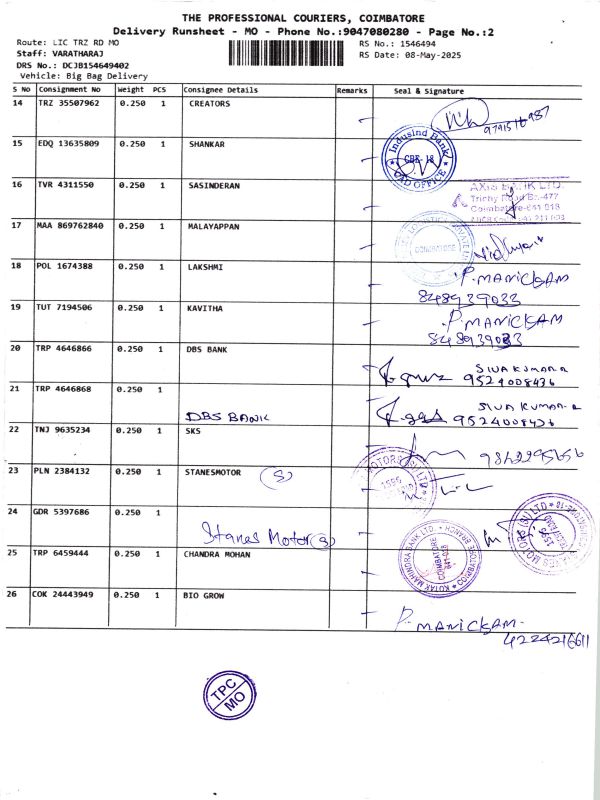 THE PROFESSIONAL COURIERS, COIMBATORE
Delivery Runsheet - MO - Phone No.:9047080280 - Page No.:2
Route: LIC TRZ RD MO
RS No.: 1546494
Staff: VARATHARAJ
RS Date: 08-May-2025
DRS No.: DCJB154649402
Vehicle: Big Bag Delivery
S No Consignment No Weight PCS Consignee Details Remarks Seal & Signature
14 TRZ 35507962 0.250 1 CREATORS
15 EDQ 13635809 0.250 1 SHANKAR
IndusInd Bank
CBE-18
CAD OFFICE
16 TVR 4311550 0.250 1 SASINDERAN
AXIS BANK LTD.
Trichy Road Br.-477
Coimbatore-641 018
17 MAA 869762840 0.250 1 MALAYAPPAN
COIMBATORE
18 POL 1674388 0.250 1 LAKSHMI
P. MANICKAM
848939033
19 TUT 7194506 0.250 1 KAVITHA
P. MANICKAM
848939033
20 TRP 4646866 0.250 1 DBS BANK
SIVAKUMAR
9524008436
21 TRP 4646868 0.250 1
DBS BANK
SIVAKUMAR
9524008436
22 TNJ 9635234 0.250 1 SKS
23 PLN 2384132 0.250 1 STANESMOTOR (S)
24 GDR 5397686 0.250 1
Stanes Motor (S)
25 TRP 6459444 0.250 1 CHANDRA MOHAN
KOTAK MAHINDRA BANK LTD.
COIMBATORE
641-018
COIMBATORE BRANCH
26 COK 24443949 0.250 1 BIO GROW
P. MANICKAM
4224216611
TPC
MO